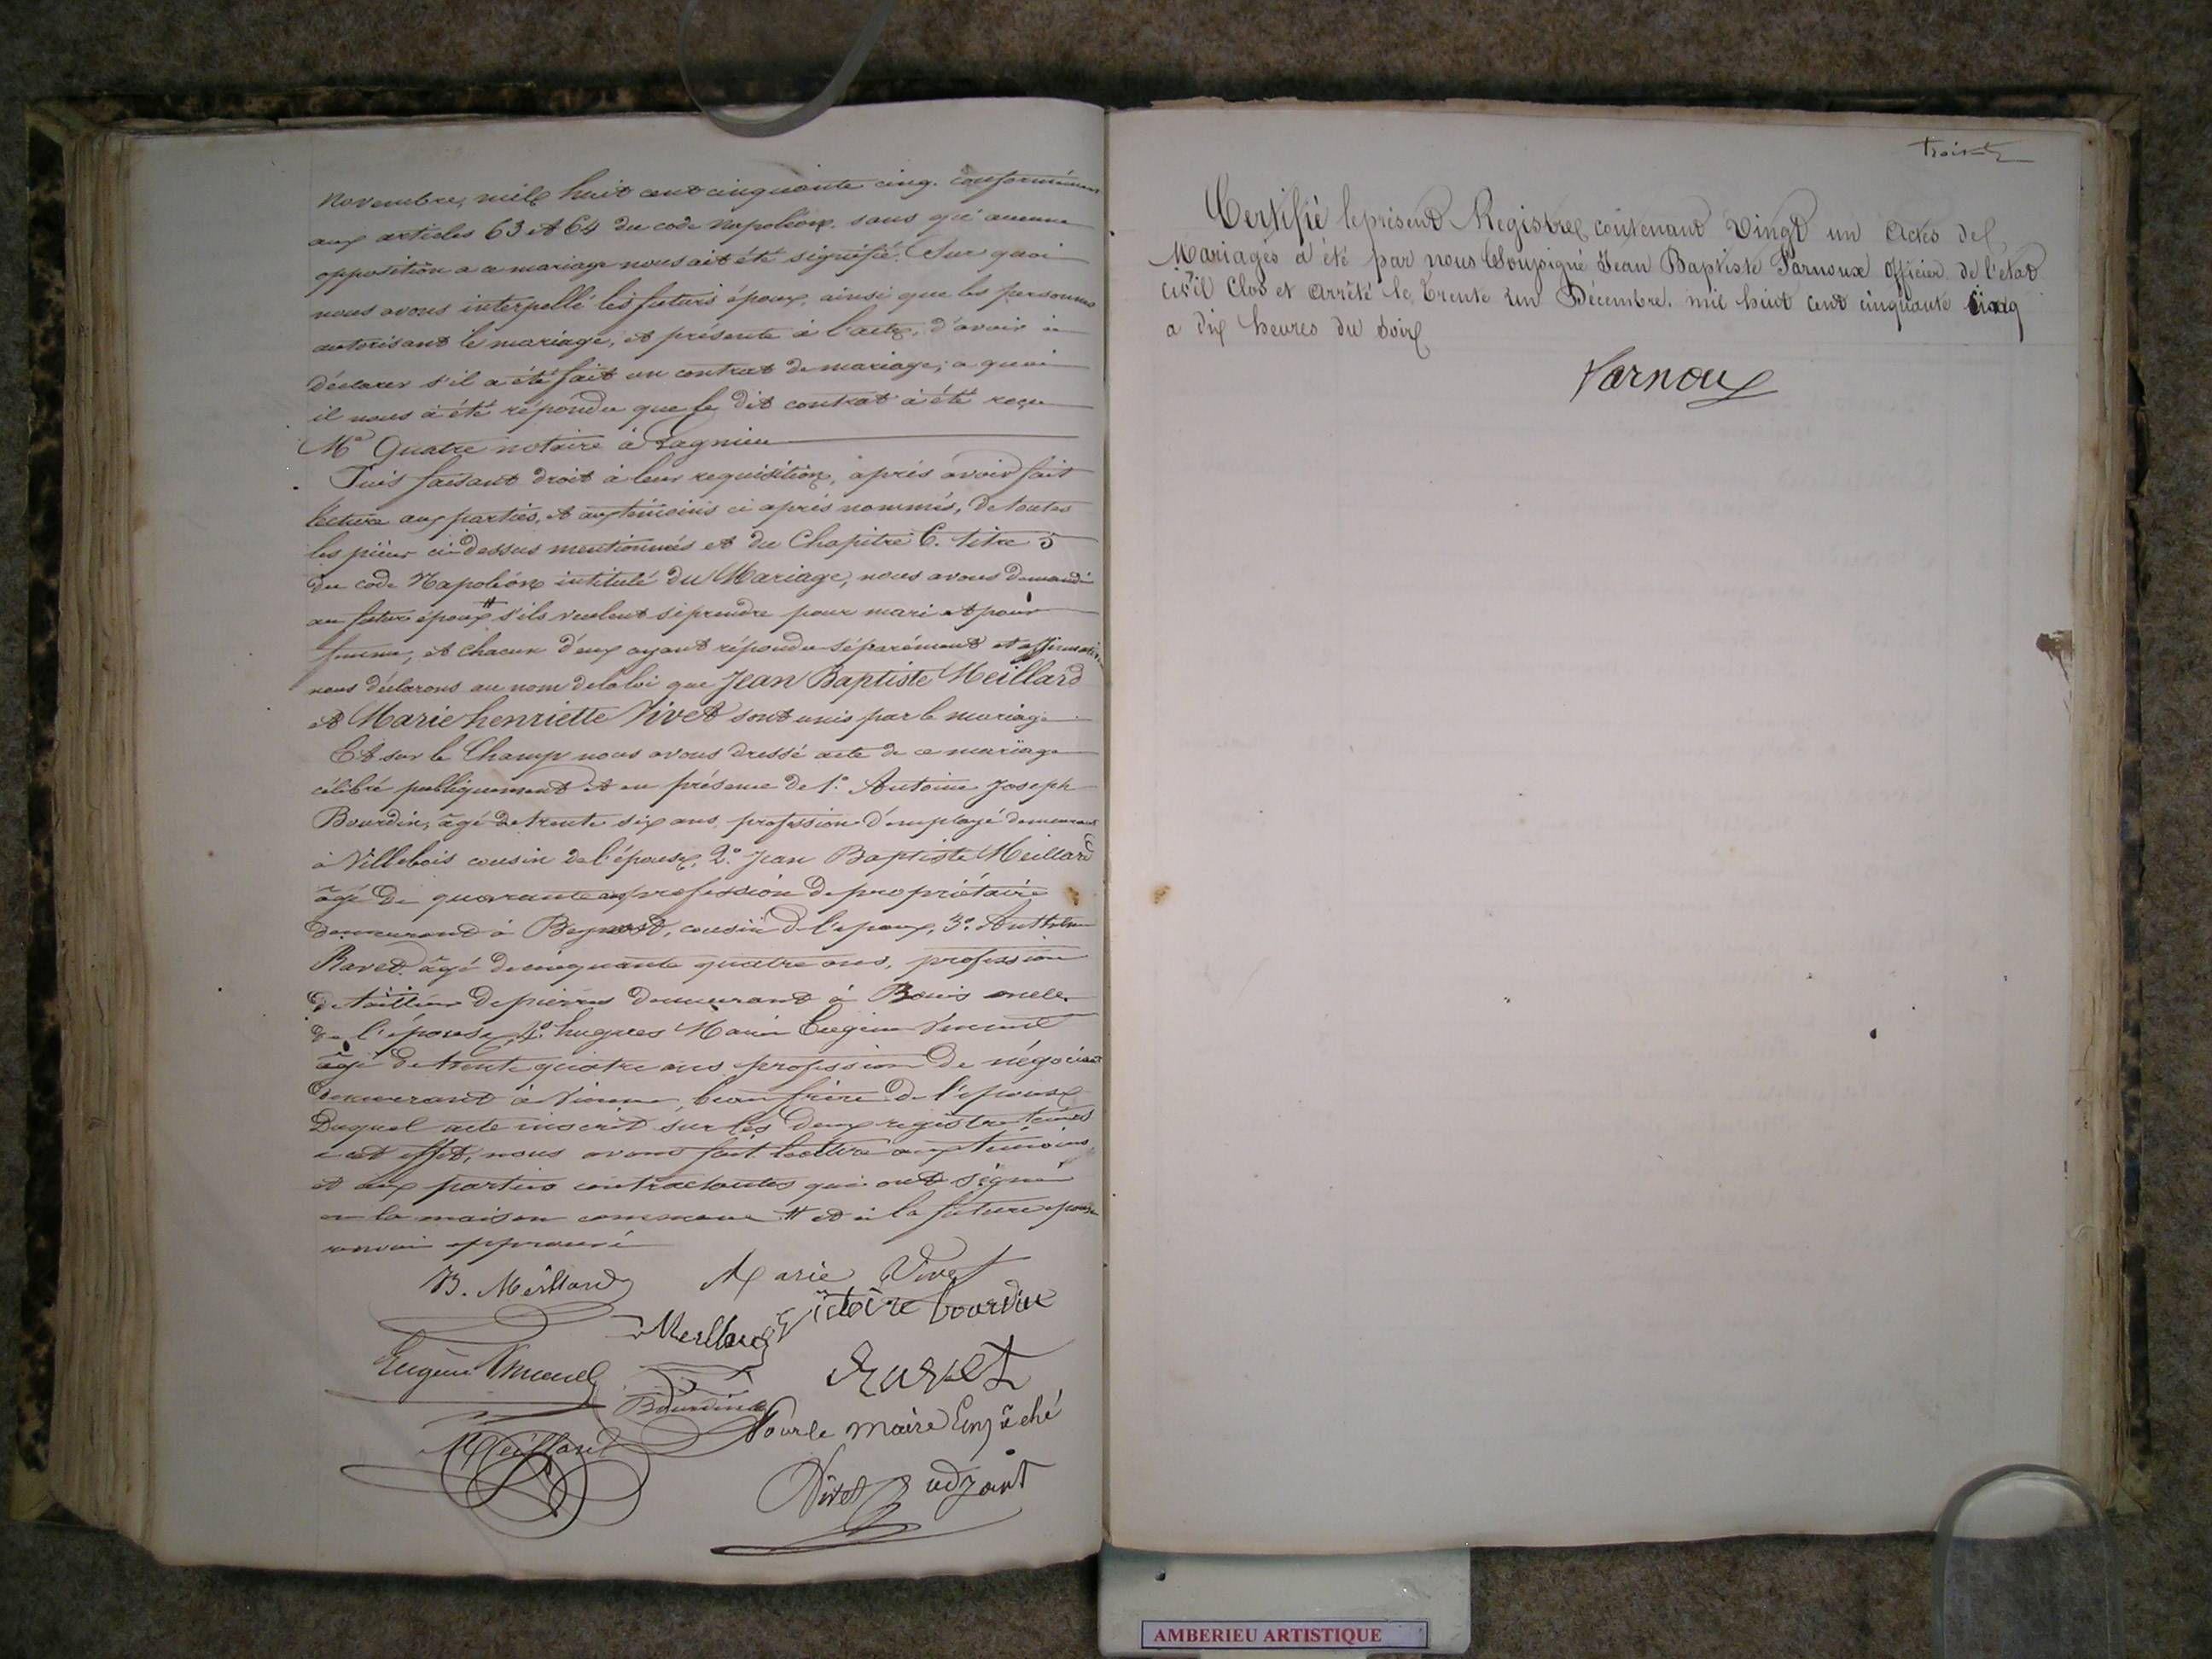 novembre, mil huit cent cinquante cinq. conformément
aux articles 63 et 64 du code Napoléon, sans qu'aucune
opposition a ce mariage nous ait été signifié. Sur quoi
nous avons interpellé les futurs époux, ainsi que les personnes
autorisant le mariage, et présente à l'acte, d'avoir à
déclarer s'il a été fait un contrat de mariage; a quoi
il nous à été répondu que le dit contrat à été reçu
Me Quatre notaire à Lagnieu
Puis faisant droit à leur requisition, après avoir fait
lecture aux parties, et aux témoins ci après nommés, de toutes
les pièces ci dessus mentionnés et du Chapitre 6. titre 5
du code Napoléon intitulé du Mariage, nous avons demandé
au futur époux # s'ils veulent se prendre pour mari et pour
femme, et chacun d'eux ayant répondu séparément et affirmative
nous déclarons au nom de la loi que Jean Baptiste Meillard
et Marie henriette Vivet sont unis par le mariage
Et sur le Champ nous avons dressé acte de ce mariage
célébré publiquement et en présence de 1.° Antoine Joseph
Bourdin, âgé de trente six ans profession d'employé demeurant
à Villebois cousin de l'épouse, 2.° Jean Baptiste Meillard
âgé de quarante ans profession de propriétaire
demeurand à Beynost, cousin de l'epoux, 3.° Anthelme
Ravet âgé de cinquante quatre ans, profession
de tailleur de pierres demeurant à Bouis oncle
de l'épouse, 4.° hugues Marie Eugène Vincent
âgé de trente quatre ans profession de négociant
demeurant à Vienne, beau frère de l'epoux
Duquel acte inscrit sur les deux registre tenus
à cet effet, nous avons fait lecture aux témoins
et aux parties contractantes qui ont signé
en la maison commune # et à la future épouse
renvoi approuvé
B. Meillard Marie Vivet
Meillard Victoire bourdin
Eugène Vincent Ravet
Bourdin Pour le maire Empêché
Meillard
Vivet adjoint
trente
Certifié le présent Registre contenant Vingt un Actes de
Mariages à été par nous Soussigné Jean Baptiste Varnoux Officier de l'état
civil Clos et Arrêté le trente un Décembre. mil huit cent cinquante cinq
a dix heures du soir
Varnoux
AMBERIEU ARTISTIQUE